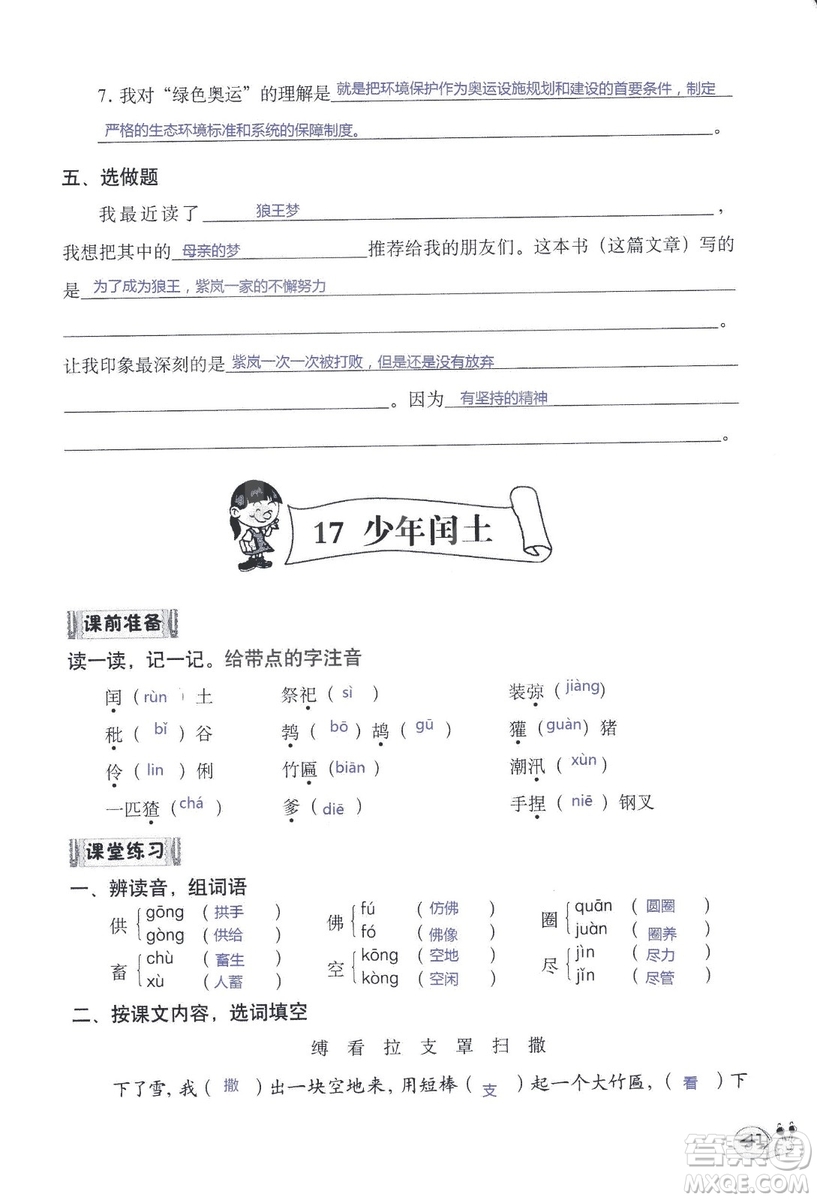 7. 我对“绿色奥运”的理解是 就是把环境保护作为奥运设施规划和建设的首要条件，制定
严格的生态环境标准和系统的保障制度。 。
五、选做题
我最近读了 狼王梦 ，
我想把其中的 母亲的梦 推荐给我的朋友们。这本书（这篇文章）写的
是 为了成为狼王，紫岚一家的不懈努力
。
让我印象最深刻的是 紫岚一次一次被打败，但是还是没有放弃
。因为 有坚持的精神
。
17 少年闰土
课前准备
读一读，记一记。给带点的字注音
闰（rùn）土 祭祀（sì） 装弶（jiàng）
秕（bǐ）谷 鹁（bō）鸪（gū） 獾（guàn）猪
伶（lìn）俐 竹匾（biān） 潮汛（xùn）
一匹猹（chá） 爹（diē） 手捏（niē）钢叉
课堂练习
一、辨读音，组词语
供 gōng（拱手） 佛 fú（仿佛） 圈 quān（圆圈）
gòng（供给） fó（佛像） juàn（圈养）
畜 chù（畜生） 空 kōng（空地） 尽 jìn（尽力）
xù（人蓄） kòng（空闲） jǐn（尽管）
二、按课文内容，选词填空
缚 看 拉 支 罩 扫 撒
下了雪，我（撒）出一块空地来，用短棒（支）起一个大竹匾，（看）下
41
答案圈
MXQE.COM